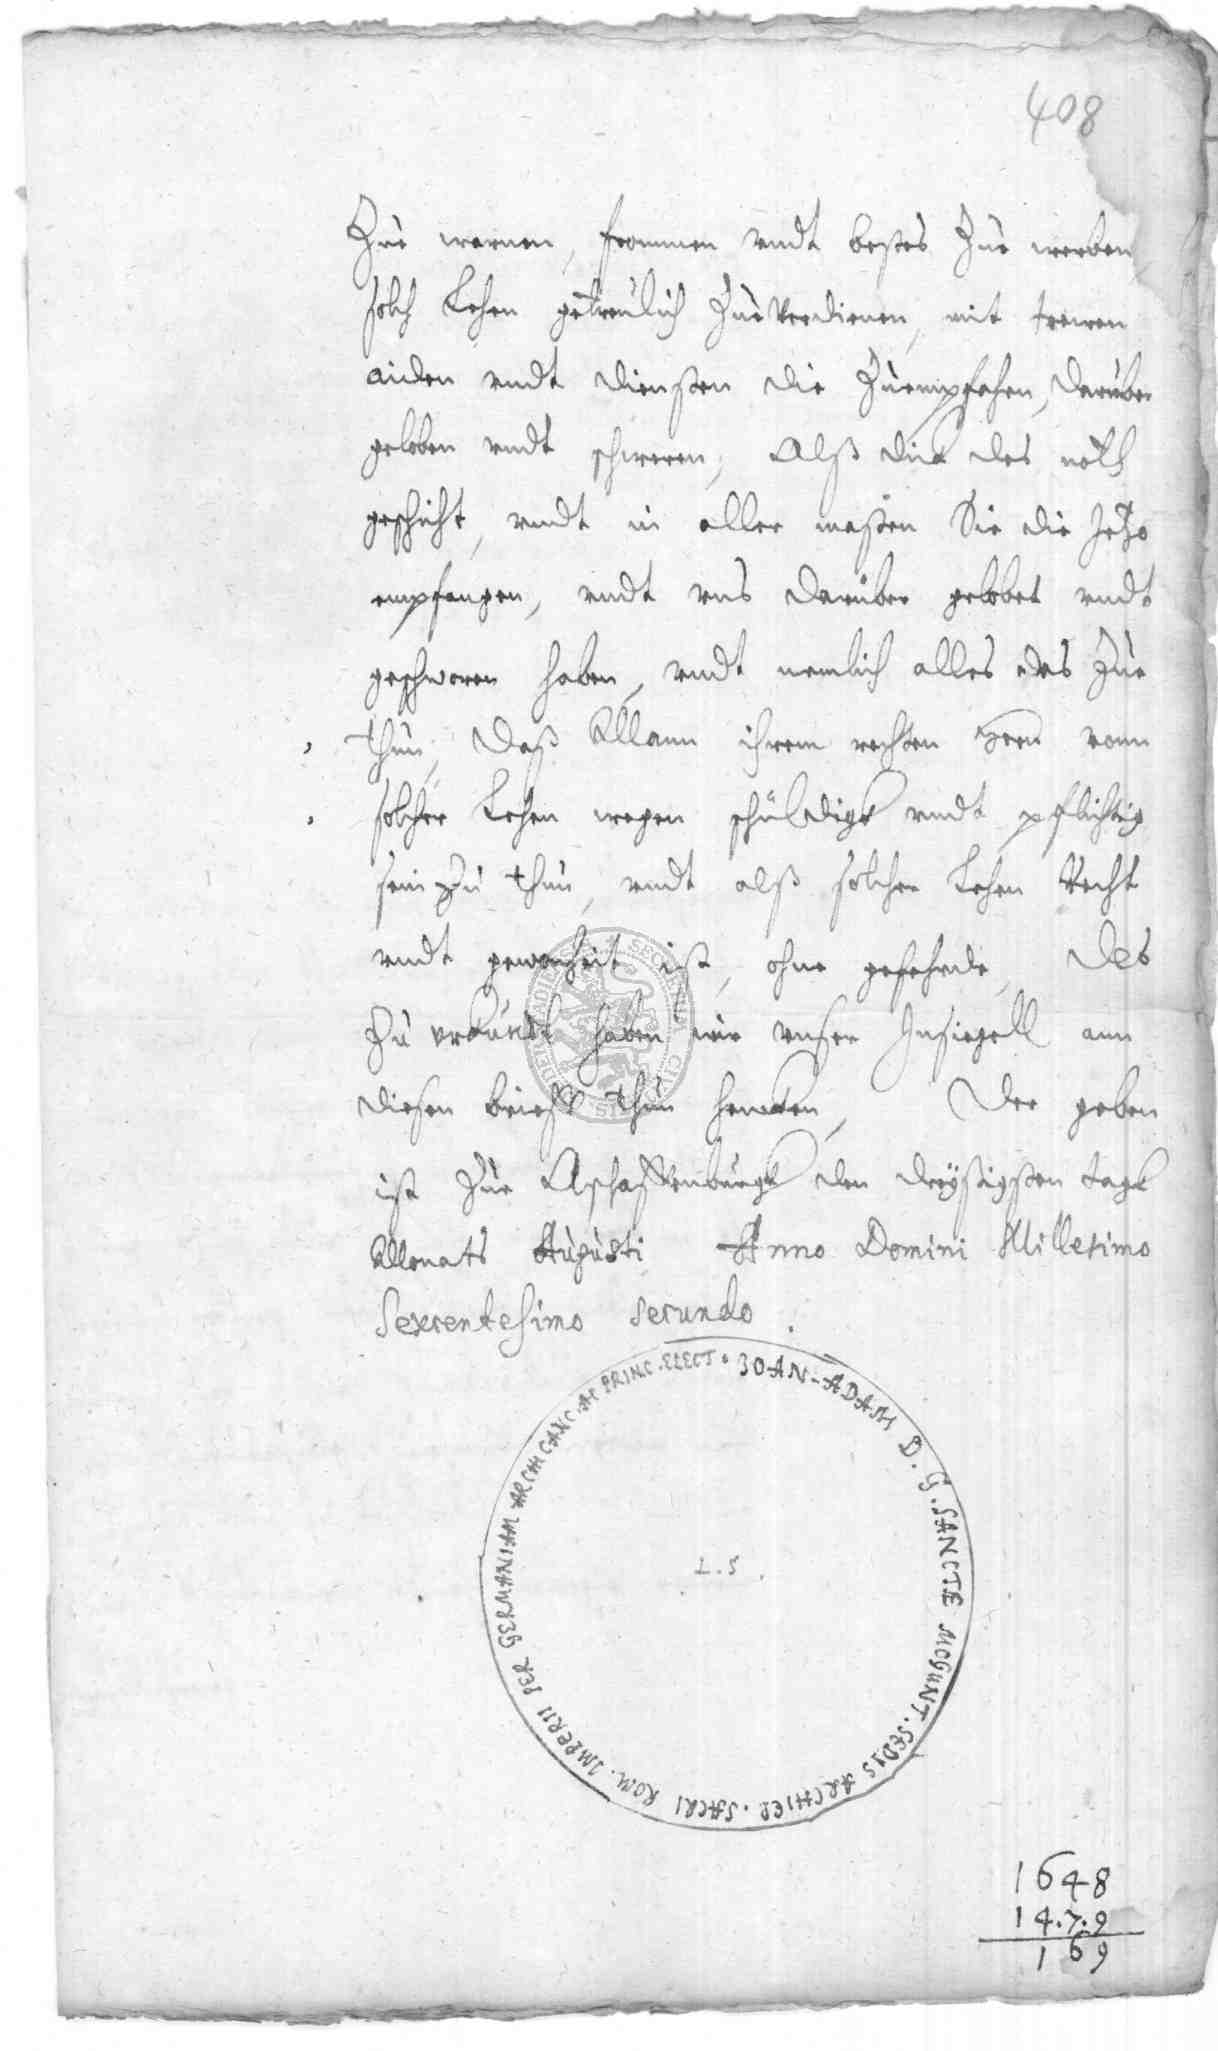 408
Zue warnen, frommen vndt bestes Zue werben
solch Lehen getreulich Zue verdienen, mit trewen
aiden vndt diensten die Zuempfahen, darüber
geloben vndt schweren, Alß dick des noth
geschicht, vndt in aller maßen Sie die Jetzo
empfangen, vndt vns darüber gelobet vndt
geschworen haben, vndt nemlich alles das Zue
thun, daß Mann ihrem rechten Herrn vonn
solcher Lehen wegen schüldigk vndt pflichtig
sein Zu thun, vndt alß solcher Lehen Recht
vndt gewonheit ist, ohne gefehrde, Des
Zu vrkundt haben wir vnser Insiegell ann
diesen brieff thun hencken, Der geben
ist Zue Aschaffenburgk den dreyßigsten tagk
Monats Augusti Anno Domini Millesimo
Sexcentesimo secundo.
JOAN-ADAM D. G. SANCTE MOGUNT. SEDIS ARCHIEP. SACRI ROM. IMPERII PER GERMANIAM ARCHICANC. AC PRINC. ELECT.
L. S.
1648
14.7.9
169